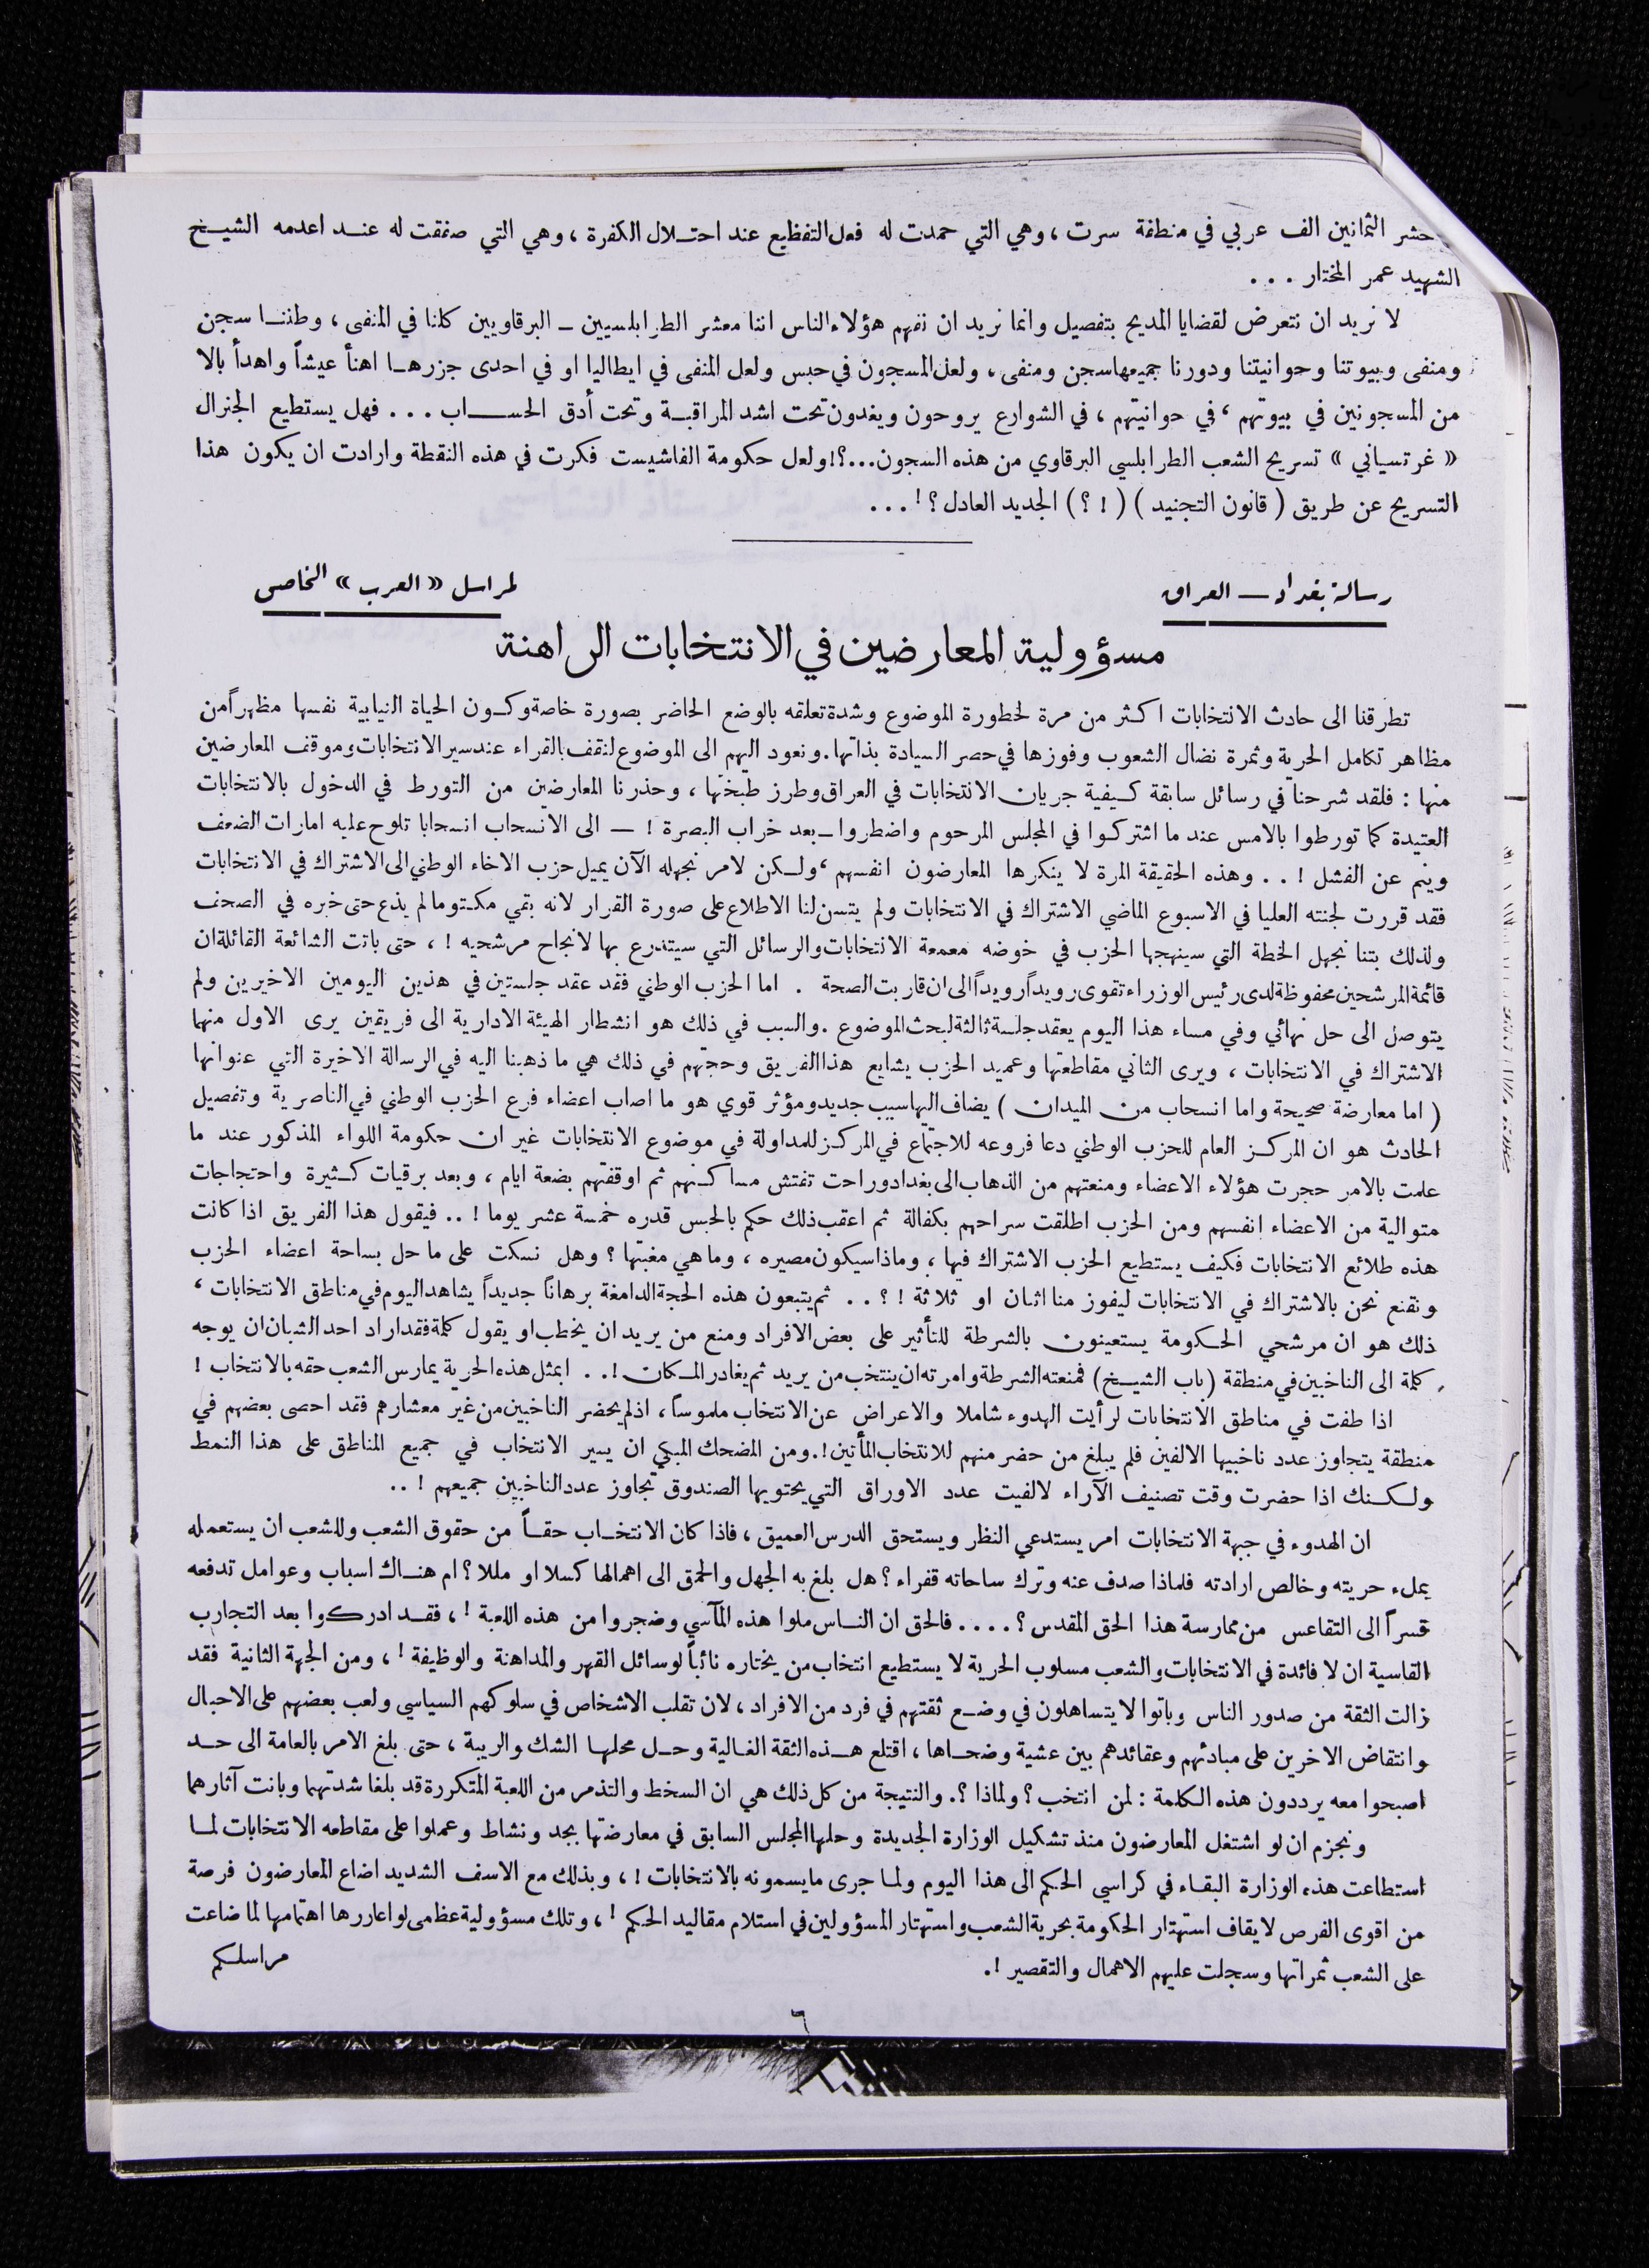 حشر الثمانين الف عربي في منطقة سرت ، وهي التي حمدت له فعل التفظيع عند احتلال الكفرة ، وهي التي صفقت له عند اعدمه الشيخ
الشهيد عمر المختار . . .
لا نريد ان نتعرض لقضايا المديح بتفصيل وانما نريد ان نفهم هؤلاء الناس اننا معشر الطرابلسيين ـ البرقاويين كلنا في المنفى ، وطننا سجن
ومنفى وبيوتنا وحوانيتنا ودورنا جميعها سجن ومنفى ، ولعل المسجون في حبس ولعل المنفى في ايطاليا او في احدى جزرها اهنأ عيشاً واهدأ بالا
من المسجونين في بيوتهم ، في حوانيتهم ، في الشوارع يروحون ويغدون تحت اشد المراقبة وتحت أدق الحساب . . . فهل يستطيع الجنرال
« غرتسياني » تسريح الشعب الطرابلسي البرقاوي من هذه السجون...؟! ولعل حكومة الفاشيست فكرت في هذه النقطة وارادت ان يكون هذا
التسريح عن طريق ( قانون التجنيد ) ( ! ؟ ) الجديد العادل ؟ ! . . .
رسالة بغداد — العراق
لمراسل « العرب » الخاص
مسؤولية المعارضين في الانتخابات الراهنة
تطرقنا الى حادث الانتخابات اكثر من مرة لخطورة الموضوع وشدة تعلقه بالوضع الحاضر بصورة خاصة وكون الحياة النيابية نفسها مظهراً من
مظاهر تكامل الحرية وثمرة نضال الشعوب وفوزها في حصر السيادة بذاتها . ونعود اليهم الى الموضوع لنقف بالقراء عند سير الانتخابات وموقف المعارضين
منها : فلقد شرحنا في رسائل سابقة كيفية جريان الانتخابات في العراق وطرز طبخها ، وحذرنا المعارضين من التورط في الدخول بالانتخابات
العتيدة كما تورطوا بالامس عند ما اشتركوا في المجلس المرحوم واضطروا ـ بعد خراب البصرة ! — الى الانسحاب انسحابا تلوح عليه امارات الضعف
وينم عن الفشل ! . . وهذه الحقيقة المرة لا ينكرها المعارضون انفسهم ، ولكن لامر نجهله الآن يميل حزب الاخاء الوطني الى الاشتراك في الانتخابات
فقد قررت لجنته العليا في الاسبوع الماضي الاشتراك في الانتخابات ولم يتسن لنا الاطلاع على صورة القرار لانه بقي مكتوما لم يذع حتى خبره في الصحف
ولذلك بتنا نجهل الخطة التي سينهجها الحزب في خوضه معمعة الانتخابات والرسائل التي سيتذرع بها لانجاح مرشحيه ! ، حتى باتت الشائعة القائلة ان
قائمة المرشحين محفوظة لدى رئيس الوزراء تقوى رويداً رويداً الى ان قاربت الصحة . اما الحزب الوطني فقد عقد جلستين في هذين اليومين الاخيرين ولم
يتوصل الى حل نهائي وفي مساء هذا اليوم يعقد جلسة ثالثة لبحث الموضوع . والسبب في ذلك هو انشطار الهيئة الادارية الى فريقين يرى الاول منهما
الاشتراك في الانتخابات ، ويرى الثاني مقاطعتها وعميد الحزب يشايع هذا الفريق وحجتهم في ذلك هي ما ذهبنا اليه في الرسالة الاخيرة التي عنوانها
( اما معارضة صحيحة واما انسحاب من الميدان ) يضاف اليها سبب جديد ومؤثر قوي هو ما اصاب اعضاء فرع الحزب الوطني في الناصرية وتفصيل
الحادث هو ان المركز العام للحزب الوطني دعا فروعه للاجتماع في المركز للمداولة في موضوع الانتخابات غير ان حكومة اللواء المذكور عند ما
علمت بالامر حجرت هؤلاء الاعضاء ومنعتهم من الذهاب الى بغداد وراحت تفتش مساكنهم ثم اوقفتهم بضعة ايام ، وبعد برقيات كثيرة واحتجاجات
متوالية من الاعضاء انفسهم ومن الحزب اطلقت سراحهم بكفالة ثم اعقب ذلك حكم بالحبس قدره خمسة عشر يوما ! .. فيقول هذا الفريق اذا كانت
هذه طلائع الانتخابات فكيف يستطيع الحزب الاشتراك فيها ، وماذا سيكون مصيره ، وما هي مغبتها ؟ وهل نسكت على ما حل بساحة اعضاء الحزب
ونقنع نحن بالاشتراك في الانتخابات ليفوز منا اثنان او ثلاثة ! ؟ . . ثم يتبعون هذه الحجة الدامغة برهاناً جديداً يشاهد اليوم في مناطق الانتخابات ،
ذلك هو ان مرشحي الحكومة يستعينون بالشرطة للتأثير على بعض الافراد ومنع من يريد ان يخطب او يقول كلمة فقد اراد احد الشبان ان يوجه
كلمة الى الناخبين في منطقة (باب الشيخ) فمنعته الشرطة وامرته ان ينتخب من يريد ثم يغادر المكان ! . . ابمثل هذه الحرية يمارس الشعب حقه بالانتخاب !
اذا طفت في مناطق الانتخابات لرأيت الهدوء شاملا والاعراض عن الانتخاب ملموساً ، اذ لم يحضر الناخبين من غير معشارهم فقد احصى بعضهم في
منطقة يتجاوز عدد ناخبيها الالفين فلم يبلغ من حضر منهم للانتخاب المأتين ! . ومن المضحك المبكي ان يسير الانتخاب في جميع المناطق على هذا النمط
ولكنك اذا حضرت وقت تصنيف الآراء لالفيت عدد الاوراق التي يحتويها الصندوق تجاوز عدد الناخبين جميعهم ! ..
ان الهدوء في جبهة الانتخابات امر يستدعي النظر ويستحق الدرس العميق ، فاذا كان الانتخاب حقاً من حقوق الشعب وللشعب ان يستعمله
بملء حريته وخالص ارادته فلماذا صدف عنه وترك ساحاته قفراء ؟ هل بلغ به الجهل والحمق الى اهمالها كسلا او مللا ؟ ام هناك اسباب وعوامل تدفعه
قسراً الى التقاعس من ممارسة هذا الحق المقدس ؟ . . . . فالحق ان الناس ملوا هذه المآسي وضجروا من هذه اللعبة ! ، فقد ادركوا بعد التجارب
القاسية ان لا فائدة في الانتخابات والشعب مسلوب الحرية لا يستطيع انتخاب من يختاره نائباً لوسائل القهر والمداهنة والوظيفة ! ، ومن الجهة الثانية فقد
زالت الثقة من صدور الناس وباتوا لا يتساهلون في وضع ثقتهم في فرد من الافراد ، لان تقلب الاشخاص في سلوكهم السياسي ولعب بعضهم على الاحبال
وانتقاض الاخرين على مبادئهم وعقائدهم بين عشية وضحاها ، اقتلع هذه الثقة الغالية وحل محلها الشك والريبة ، حتى بلغ الامر بالعامة الى حد
اصبحوا معه يرددون هذه الكلمة : لمن انتخب ؟ ولماذا ؟. والنتيجة من كل ذلك هي ان السخط والتذمر من اللعبة المتكررة قد بلغا شدتهما وبانت آثارهما
ونجزم ان لو اشتغل المعارضون منذ تشكيل الوزارة الجديدة وحلها المجلس السابق في معارضتها بجد ونشاط وعملوا على مقاطعه الانتخابات لما
استطاعت هذه الوزارة البقاء في كراسي الحكم الى هذا اليوم ولما جرى ما يسمونه بالانتخابات ! ، وبذلك مع الاسف الشديد اضاع المعارضون فرصة
من اقوى الفرص لايقاف استهتار الحكومة بحرية الشعب واستهتار المسؤولين في استلام مقاليد الحكم ! ، وتلك مسؤولية عظمى لو اعاروها اهتمامها لما ضاعت
على الشعب ثمراتها وسجلت عليهم الاهمال والتقصير ! .
مراسلكم
٦